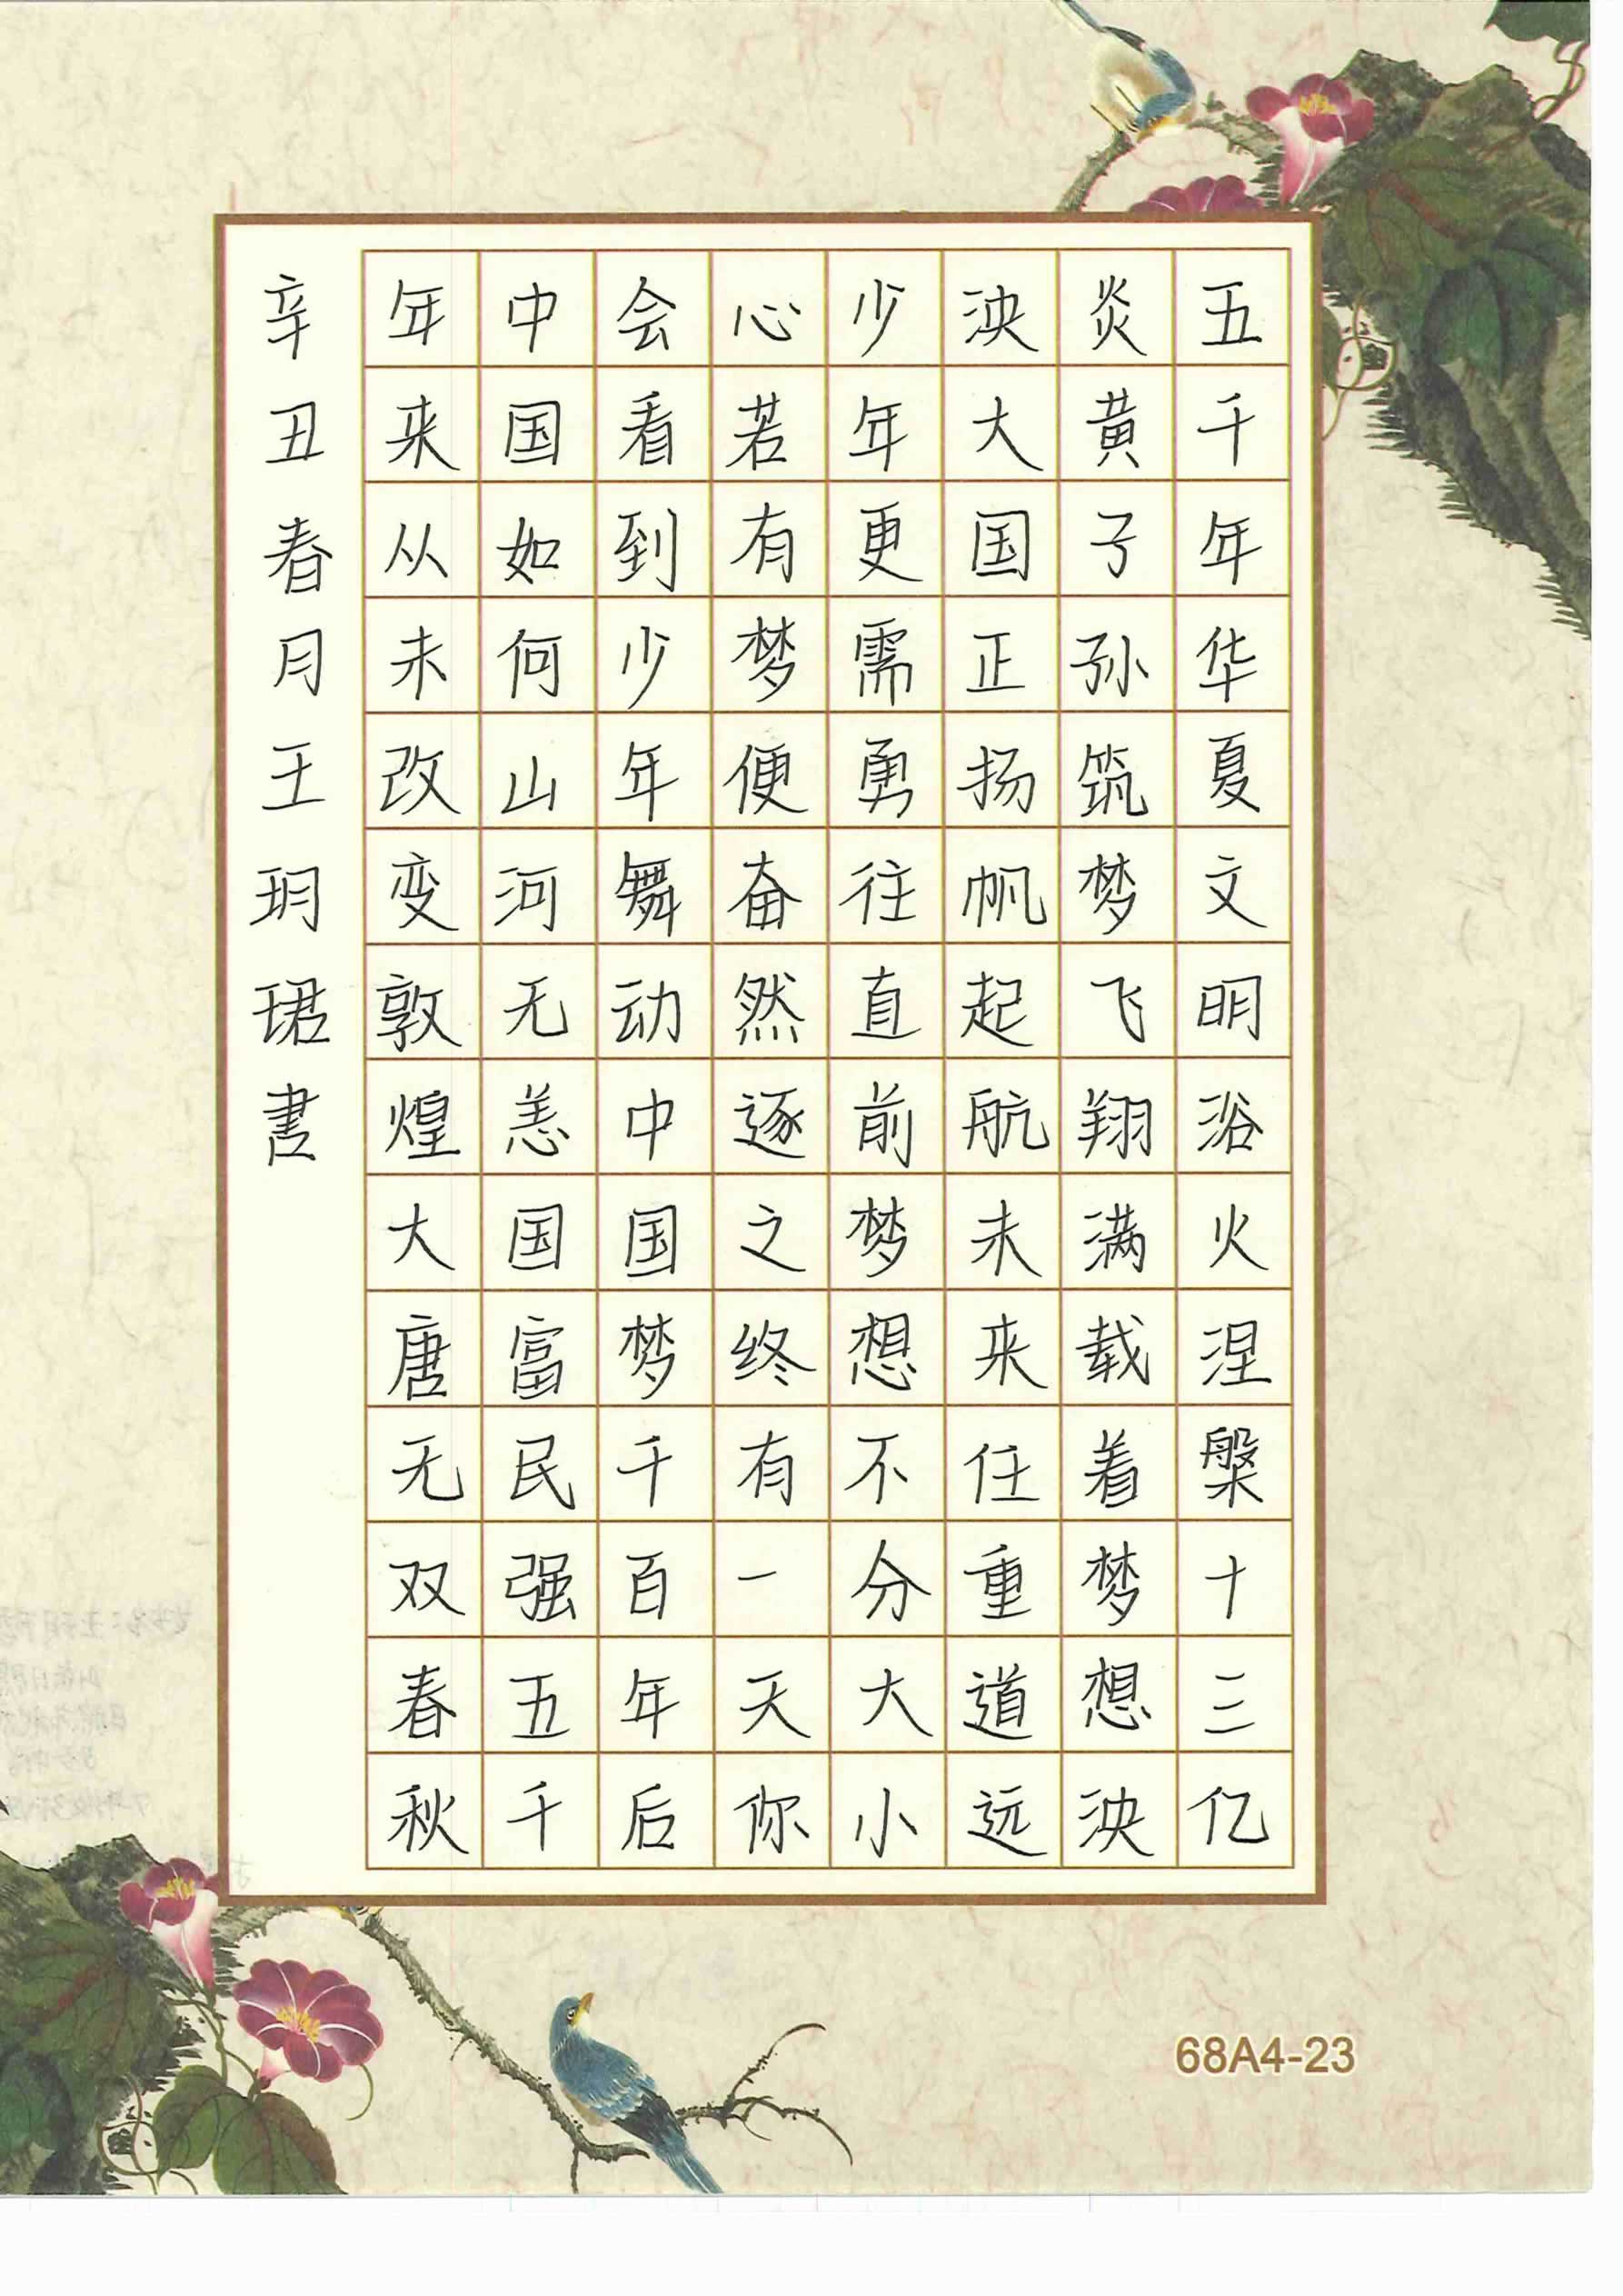 五千年华夏文明浴火涅槃十三亿
炎黄子孙筑梦飞翔满载着梦想泱
泱大国正扬帆起航未来任重道远
少年更需勇往直前梦想不分大小
心若有梦便奋然逐之终有一天你
会看到少年舞动中国梦千百年后
中国如何山河无恙国富民强五千
年来从未改变敦煌大唐无双春秋
辛丑春月王玥珺書
68A4-23